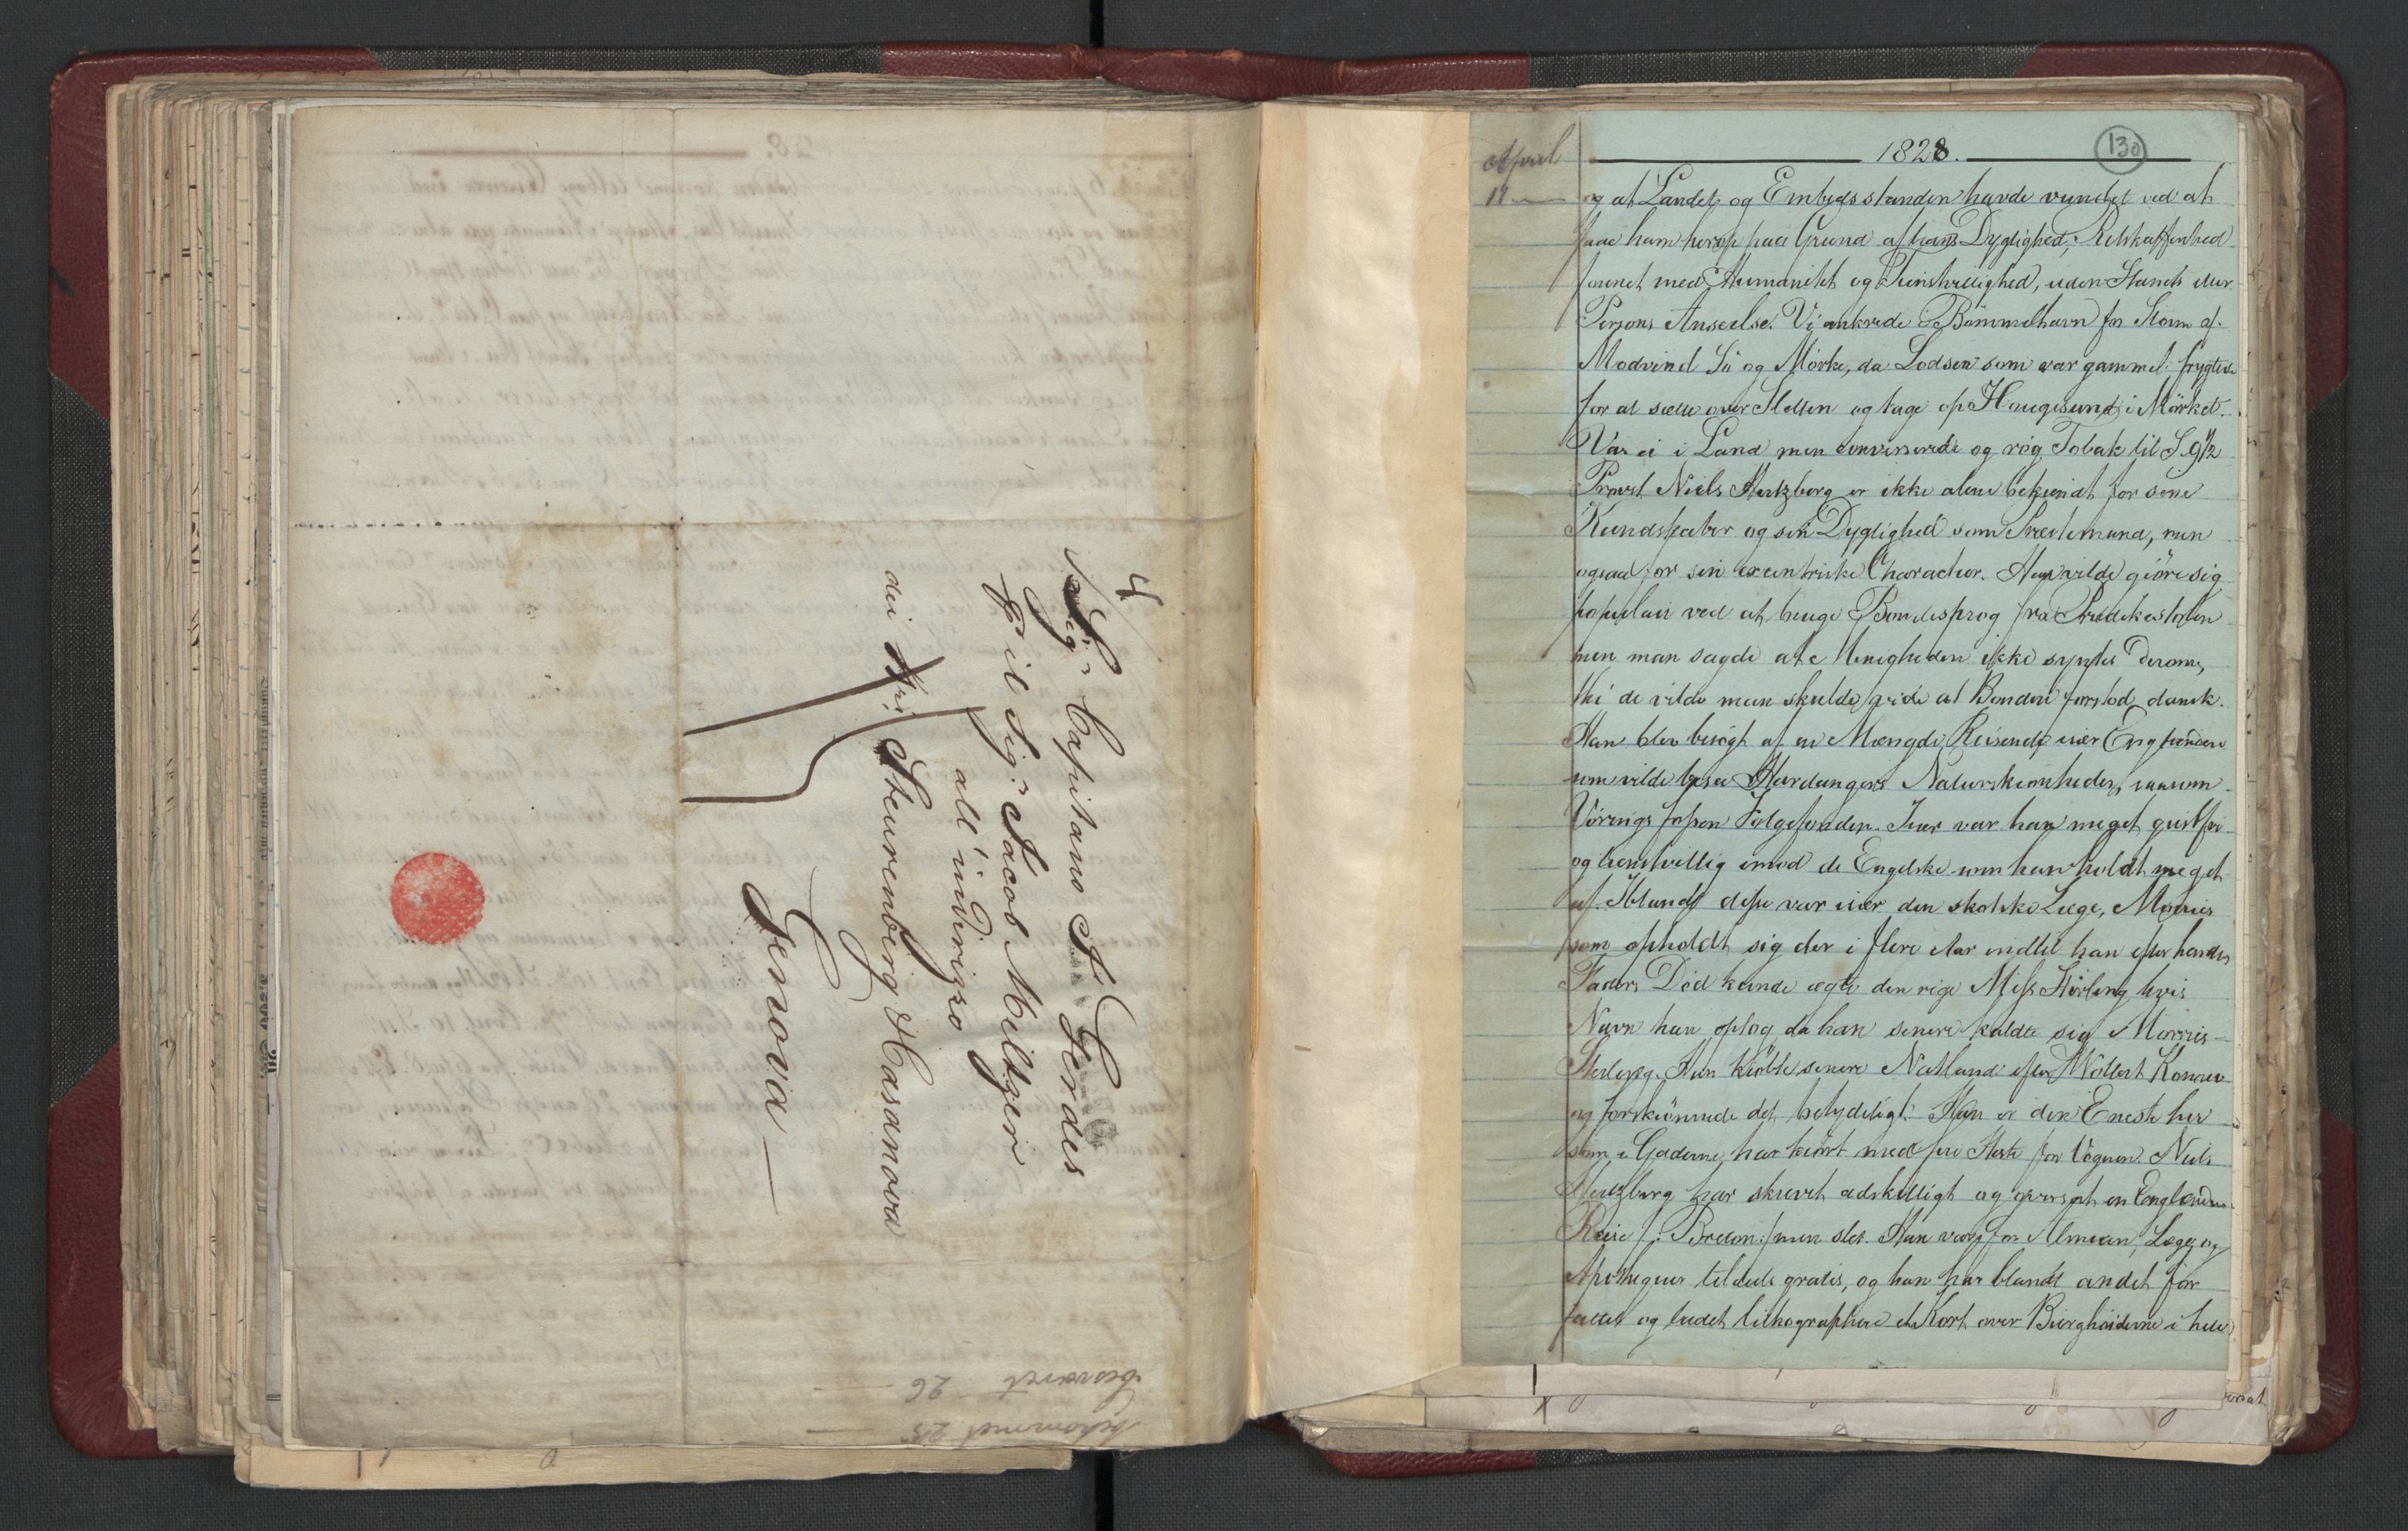 4
Sigr. Capitano F. Gerdes
p il Sigr. Jacob Meltzer
all' indirizzo
dei Sri. Steurenberg & Casanova
Genova
besvaret 26
bekommet 25
April
1828.
130
og at Landet og Embedsstanden havde vundet ved at
faae ham herop paa Grund af hans Dygtighed, Retskaffenhed
forenet med Humanitet og Tienstvillighed, uden Stands eller
Persons Anseelse. Vi ankrede i Bömmelhavn for Storm af
Modvind Sö og Mörke, da Lodsen som var gammel frygtede
for at sætte over Sletten og tage op Haugesund i Mörket.
Var ei i Land men converserede og røg Tobak til S. 9 1/2
Provst Niels Hertzberg er ikke alene bekiendt for sine
Kundskaber og sin Dygtighed som Præstemand, men
ogsaa for sin excentriske Charachter. Han vilde giöre sig
populair ved at bruge Bondesprog fra Prædikestolen
men man sagde at Menigheden ikke syntes derom,
thi de vilde man skulde vide at Bonden forstod dansk.
Han blev besögt af en Mængde Reisende især Englændere
som vilde besee Hardangers Naturskiønheder, saasom
Vöringsfossen Folgefonden. Især var han meget giestfri
og tienstvillig imod de Engelske som han holdt meget
af. Iblandt disse var især den skotske Læge, Morries
som opholdt sig der i flere Aar indtil han efter hendes
Faders Död kunde ægte den rige Miss Stirling hvis
Navn han optog da han senere kaldte sig Morries
Sterling. Han kiöbte senere Natland efter Wollert Konow
og forskiönnede det betydeligt. Han er den Eneste her
som i Gaderne har kiört med fire Heste for Vognen. Niels
Hertzberg har skrevet adskilligt og oversat en Englænders
Reise /: Breton:/ men slet. Han var for Almuen, Læge og
Apothequer tildeels gratis, og han har blandt andet for
fattet og ladet lithographere et Kort over Bierghöiderne i hele